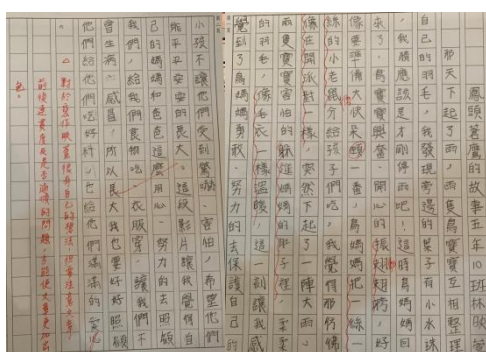 鳳頭蒼鷹的故事五年10班林欣
那天下起了雨,鳥寶寶互相整理
自己的羽毛,我發現旁邊的葉子有小水珠
,我猜應該是才剛停雨吧!這時鳥媽媽回
來了,鳥寶寶興奮、開心的振翅翅膀,好
像要準備大快朵頤一番,鳥媽媽把一絲一
絲的小老鼠分給孩子們吃,我覺得那彷彿
像在開派對一樣,突然下起了一陣大雨,
兩隻寶寶害怕的躲進媽媽的肚子裡,柔柔
的羽毛,像毛衣一樣溫暖,這一刻讓我感
覺到了鳥媽媽勇敢、努力的去保護自己的
小孩不讓他們受到驚嚇、害怕,希望他們
能平平安安的長大。這段影片讓我覺得自
己的媽媽和爸爸這麼用心、努力的去照顧
我們,給我們食物吃、衣服穿、讓我們不
會生病、感冒,所以長大我也要好好照顧
他們,給他們吃好料,也給他們滿滿的愛
。